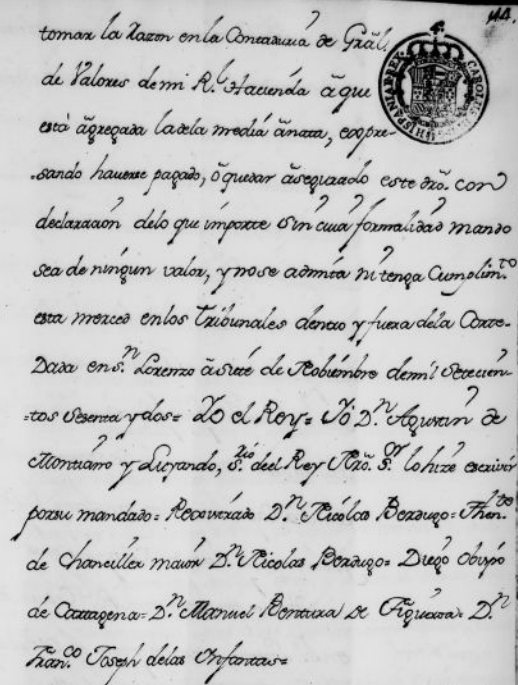 44.
tomar la Razon en la Contaduria de Gràl.
de Valores de mi R.l Hacienda à que
està àgregada la dela mediá ànata, expre-
sando haverse pagado, ò quedar àsegurado este dro. con
declaracion delo que importe sin cuia formalidad mando
sea de ningun valor, y no se admita ni tenga Cumplim.to
esta merced en los Tribunales dentro y fuera dela Corte.
Dada en S.n Lorenzo à siete de Nobiembre de mil setecien-
=tos sesenta y dos= Yo el Rey= Yó D.n Agustin de
Montiàno y Luyando, S.rio del Rey Nro. S.or lo hize escrivir
por su mandado= Rexistrado D.n Nicólas Berdugo= Then.te
de Chanciller maior D.n Nicolas Berdugo= Diego Obispo
de Cartagena= D.n Manuel Bentura de Figueroa= D.n
Fran.co Joseph delas Infantas=